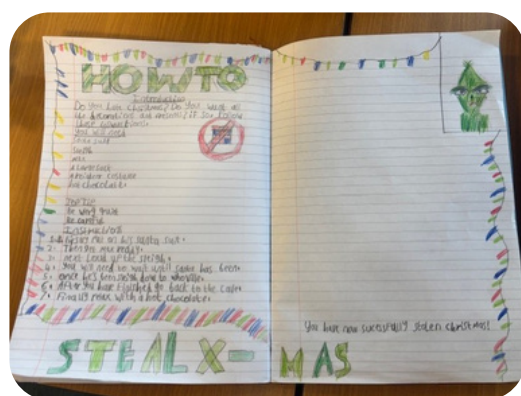 HOW TO
Introduction
Do you hate Christmas? Do you want
If so follow
these instructions.
You will need
Santa suit
Sleigh
Max
A large sack
A reindeer costume
hot chocolate
be very
be careful
Instructions
1. his santa suit.
2. Then get max ready.
3. next Load up the sleigh.
4. You will need to wait until santa has been.
5. Once he's been sleigh down to whoville.
6. After you have finished go back to the cave.
7. Finally relax with a hot chocolate.
You have now sucessfully stolen christmas!
STEAL X-MAS